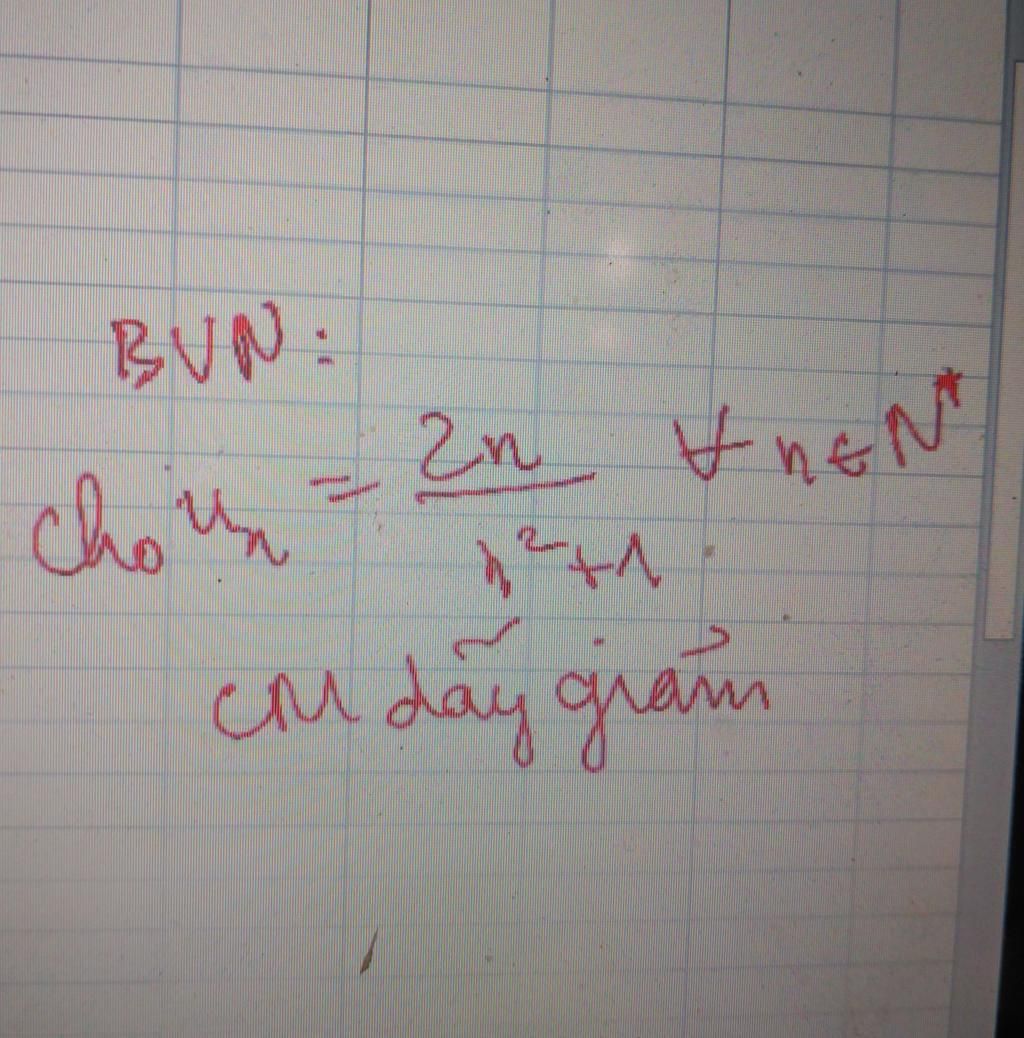 BVN:
Cho uₙ = 2n / n²+1 ∀ n ∈ N*
CM dãy giảm